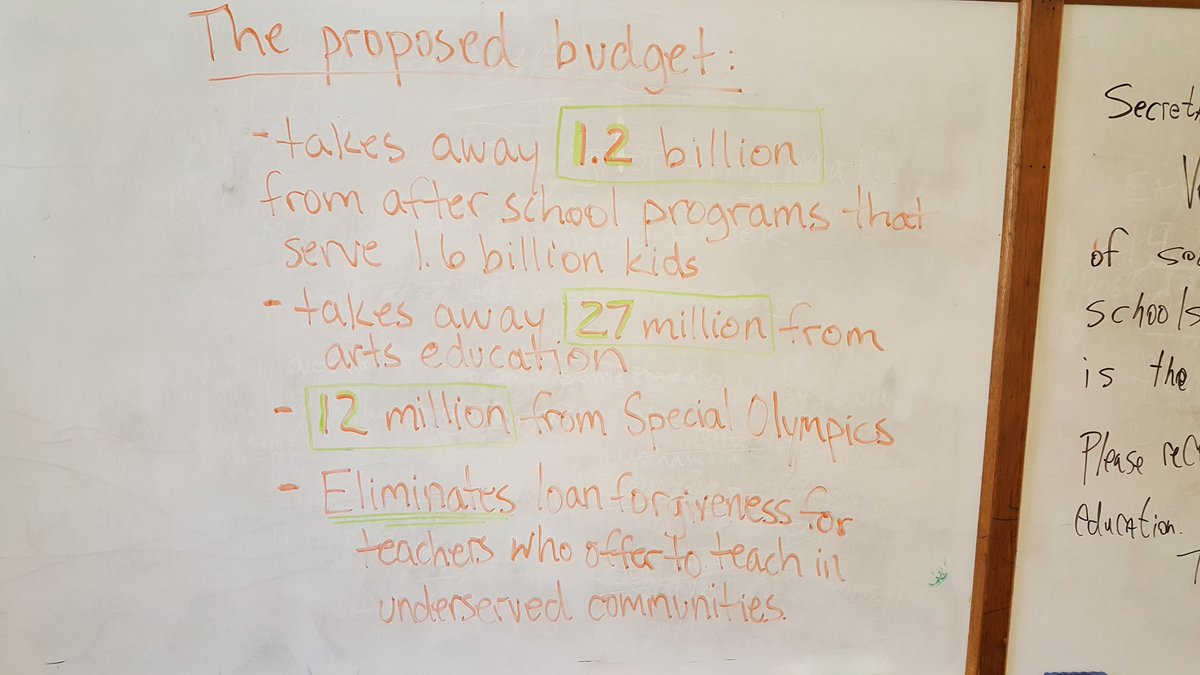 The proposed budget:
- takes away 1.2 billion
from after school programs that
serve 1.6 billion kids
- takes away 27 million from
arts education
- 12 million from Special Olympics
- Eliminates loan forgiveness for
teachers who offer to teach in
underserved communities.
of
schools
is the
Please
education.